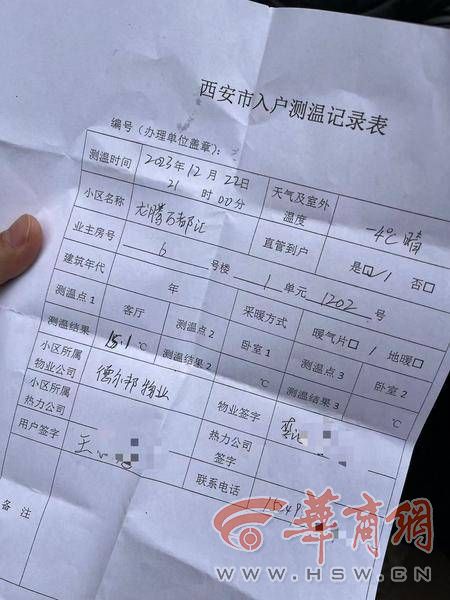 西安市入户测温记录表
编号(办理单位盖章):
测温时间 2023年12月22日 21时00分 天气及室外温度 -4℃ 晴
小区名称 龙腾万都汇 直管到户 是☑ 否□
业主房号 6 号楼 1 单元 1202 号
建筑年代 年 采暖方式 暖气片□ 地暖□
测温点1 客厅 测温点2 卧室1 测温点3 卧室2
测温结果1 15.1 ℃ 测温结果2 ℃ 测温结果3 ℃
小区所属物业公司 德尔邦物业 物业签字
小区所属热力公司 热力公司签字
用户签字 王 联系电话 1549
备注
华商网
WWW.HSW.CN